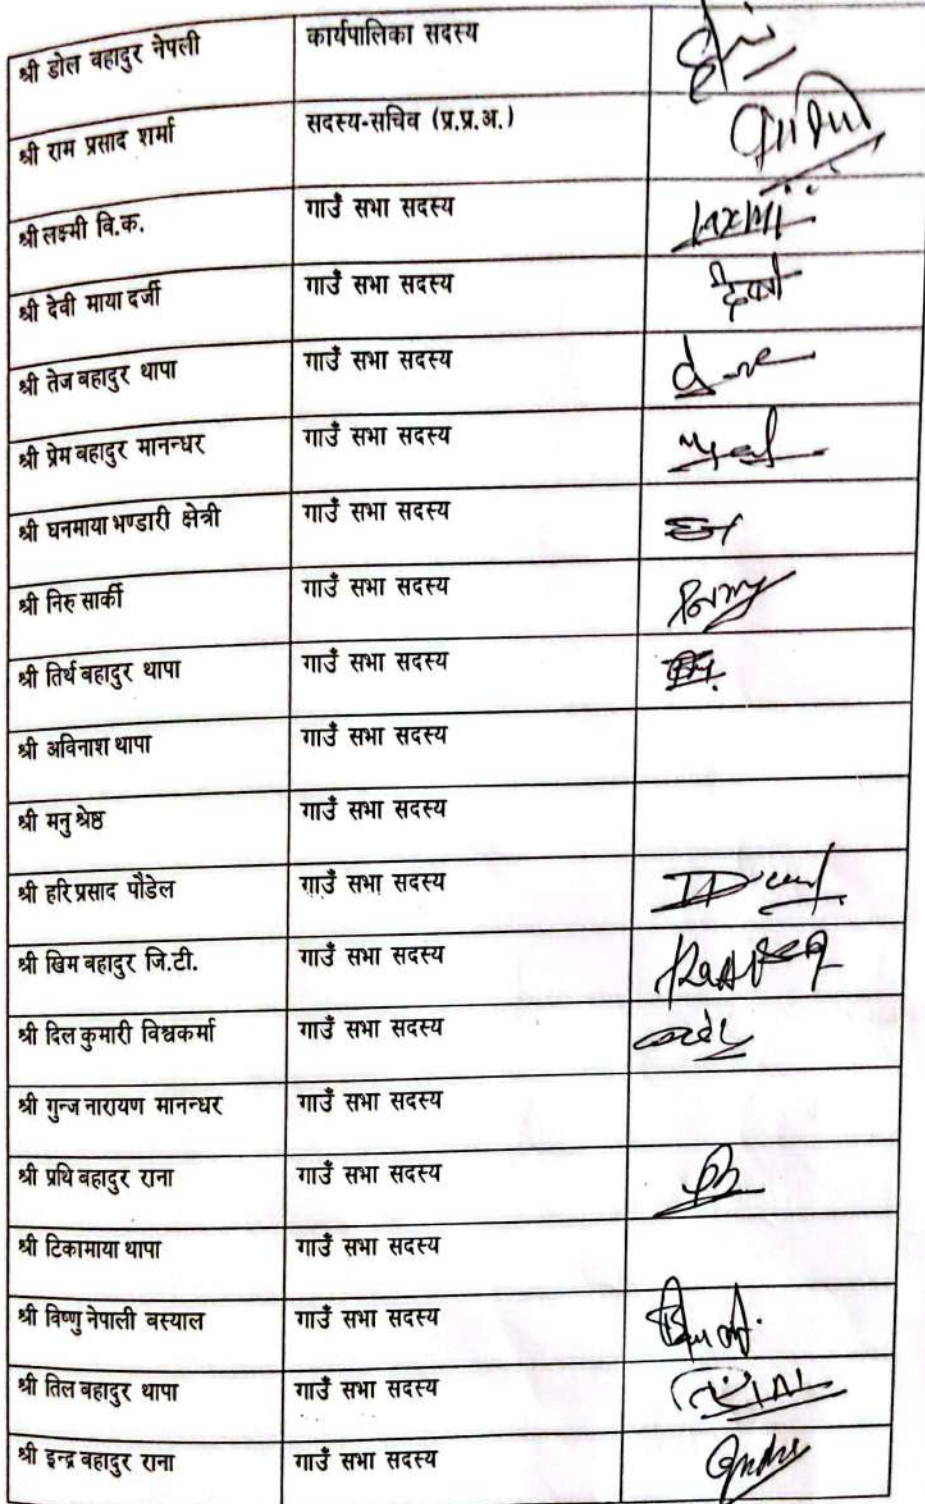 श्री डोल बहादुर नेपली कार्यपालिका सदस्य
श्री राम प्रसाद शर्मा सदस्य-सचिव (प्र.प्र.अ.)
श्री लक्ष्मी वि.क. गाउँ सभा सदस्य Laxmi
श्री देवी माया दर्जी गाउँ सभा सदस्य
श्री तेज बहादुर थापा गाउँ सभा सदस्य
श्री प्रेम बहादुर मानन्धर गाउँ सभा सदस्य
श्री घनमाया भण्डारी क्षेत्री गाउँ सभा सदस्य
श्री निरु सार्की गाउँ सभा सदस्य
श्री तिर्थ बहादुर थापा गाउँ सभा सदस्य
श्री अविनाश थापा गाउँ सभा सदस्य
श्री मनु श्रेष्ठ गाउँ सभा सदस्य
श्री हरि प्रसाद पौडेल गाउँ सभा सदस्य
श्री खिम बहादुर जि.टी. गाउँ सभा सदस्य
श्री दिल कुमारी विश्वकर्मा गाउँ सभा सदस्य
श्री गुन्ज नारायण मानन्धर गाउँ सभा सदस्य
श्री प्रथि बहादुर राना गाउँ सभा सदस्य
श्री टिकामाया थापा गाउँ सभा सदस्य
श्री विष्णु नेपाली बस्याल गाउँ सभा सदस्य
श्री तिल बहादुर थापा गाउँ सभा सदस्य
श्री इन्द्र बहादुर राना गाउँ सभा सदस्य